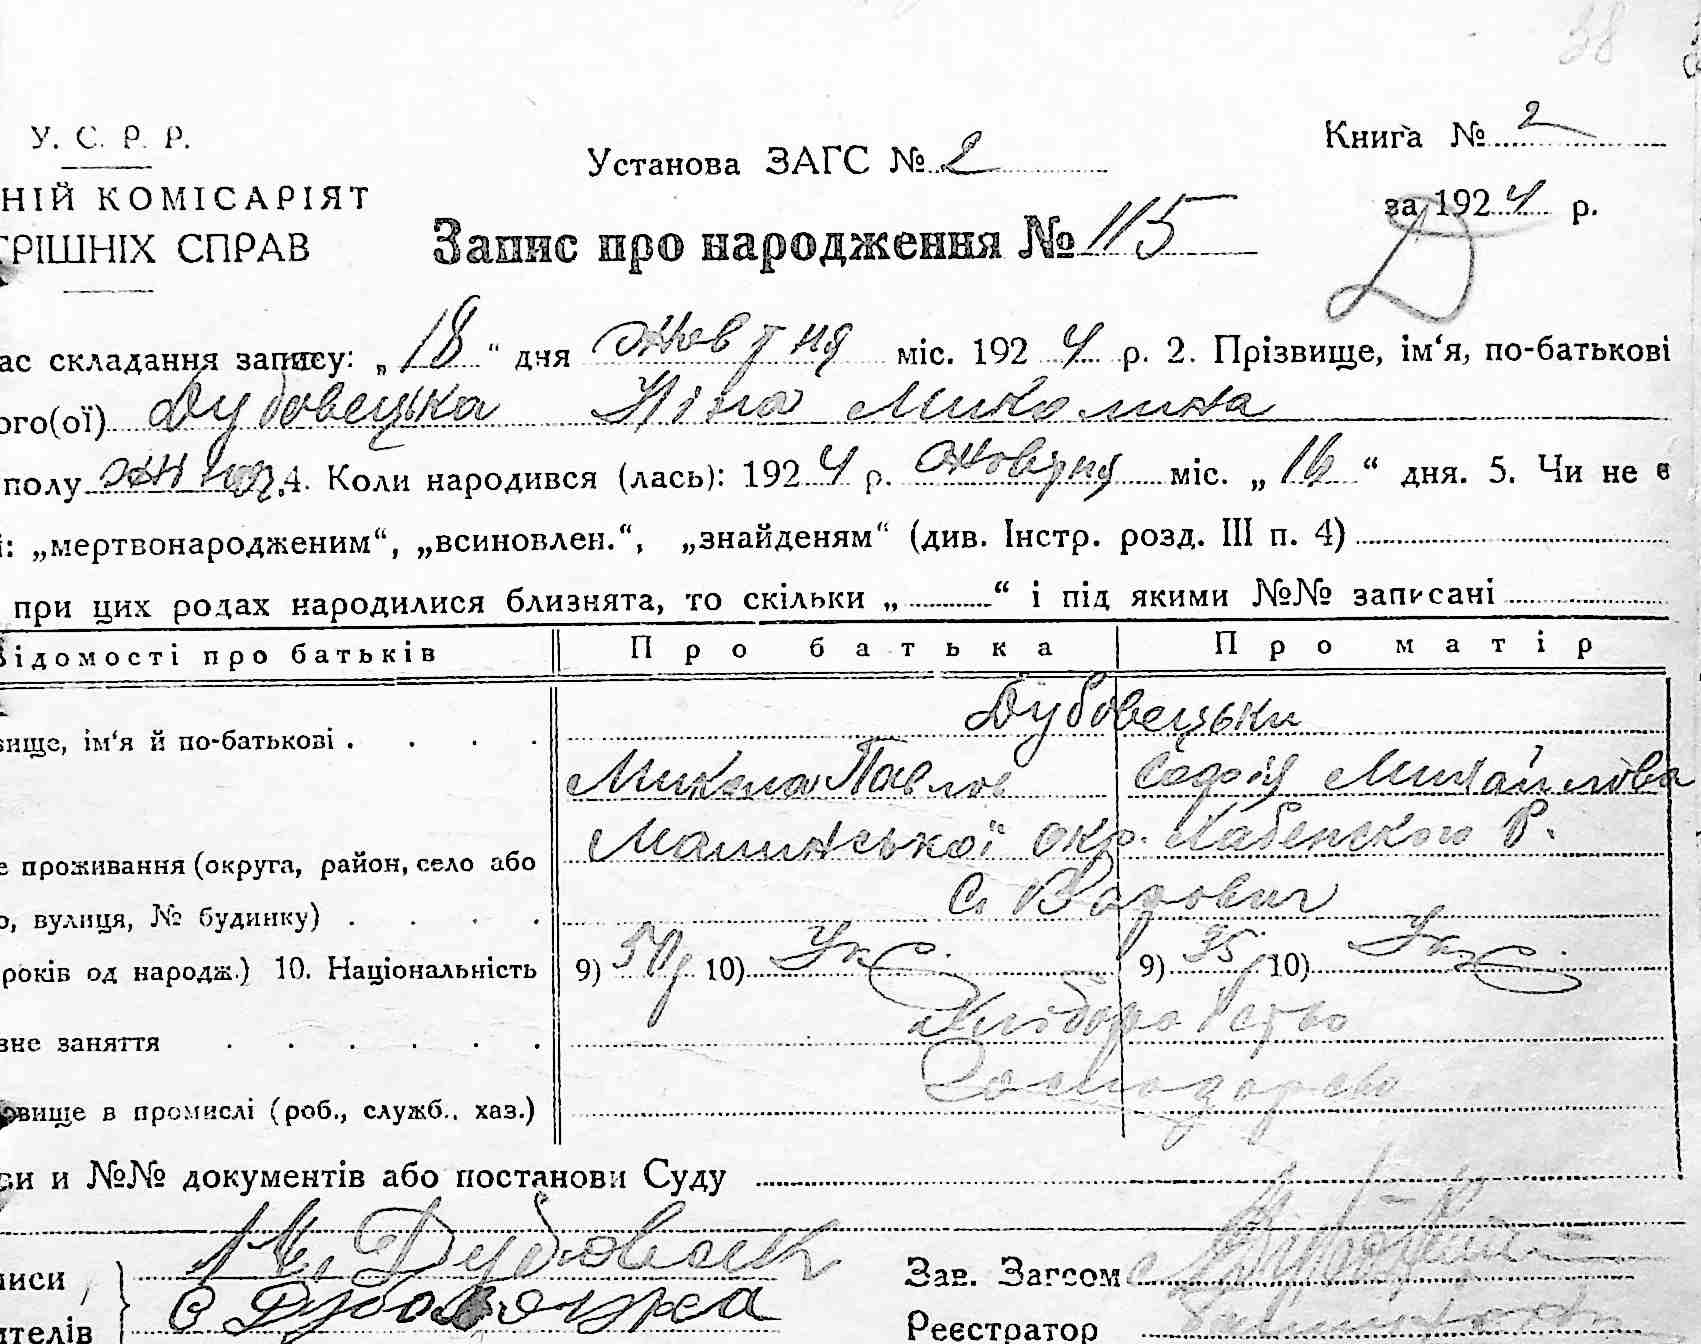 38
У. С. Р. Р.
Установа ЗАГС № 2
Книга № 2
НІЙ КОМІСАРІЯТ
за 1924 р.
РІШНІХ СПРАВ
Запис про народження № 115
Д
ас складання запису: „18“ дня Жовтня міс. 1924 р. 2. Прізвище, ім‘я, по-батькові
ого(ої) Дубовецька Ніна Миколина
полу жіноч. 4. Коли народився (лась): 1924 р. Жовтня міс. „16“ дня. 5. Чи не є
і: „мертвонародженим“, „всиновлен.“, „знайденям“ (див. Інстр. розд. III п. 4)
при цих родах народилися близнята, то скільки „ “ і під якими №№ записані
ідомості про батьків Про батька Про матір
Дубовецьки
вище, ім‘я й по-батькові
Микола Павлов Софія Михайлова
Малинської окр. Хабенского Р.
е проживання (округа, район, село або
о, вулиця, № будинку)
С.
років од народж.) 10. Національність 9) 50р 10) Ук 9) 35 10) Ук
Хліборобство
вне заняття
овище в промислі (роб., служб., хаз.)
ви и №№ документів або постанови Суду
писи
Зав. Загсом
ителів
Реєстратор